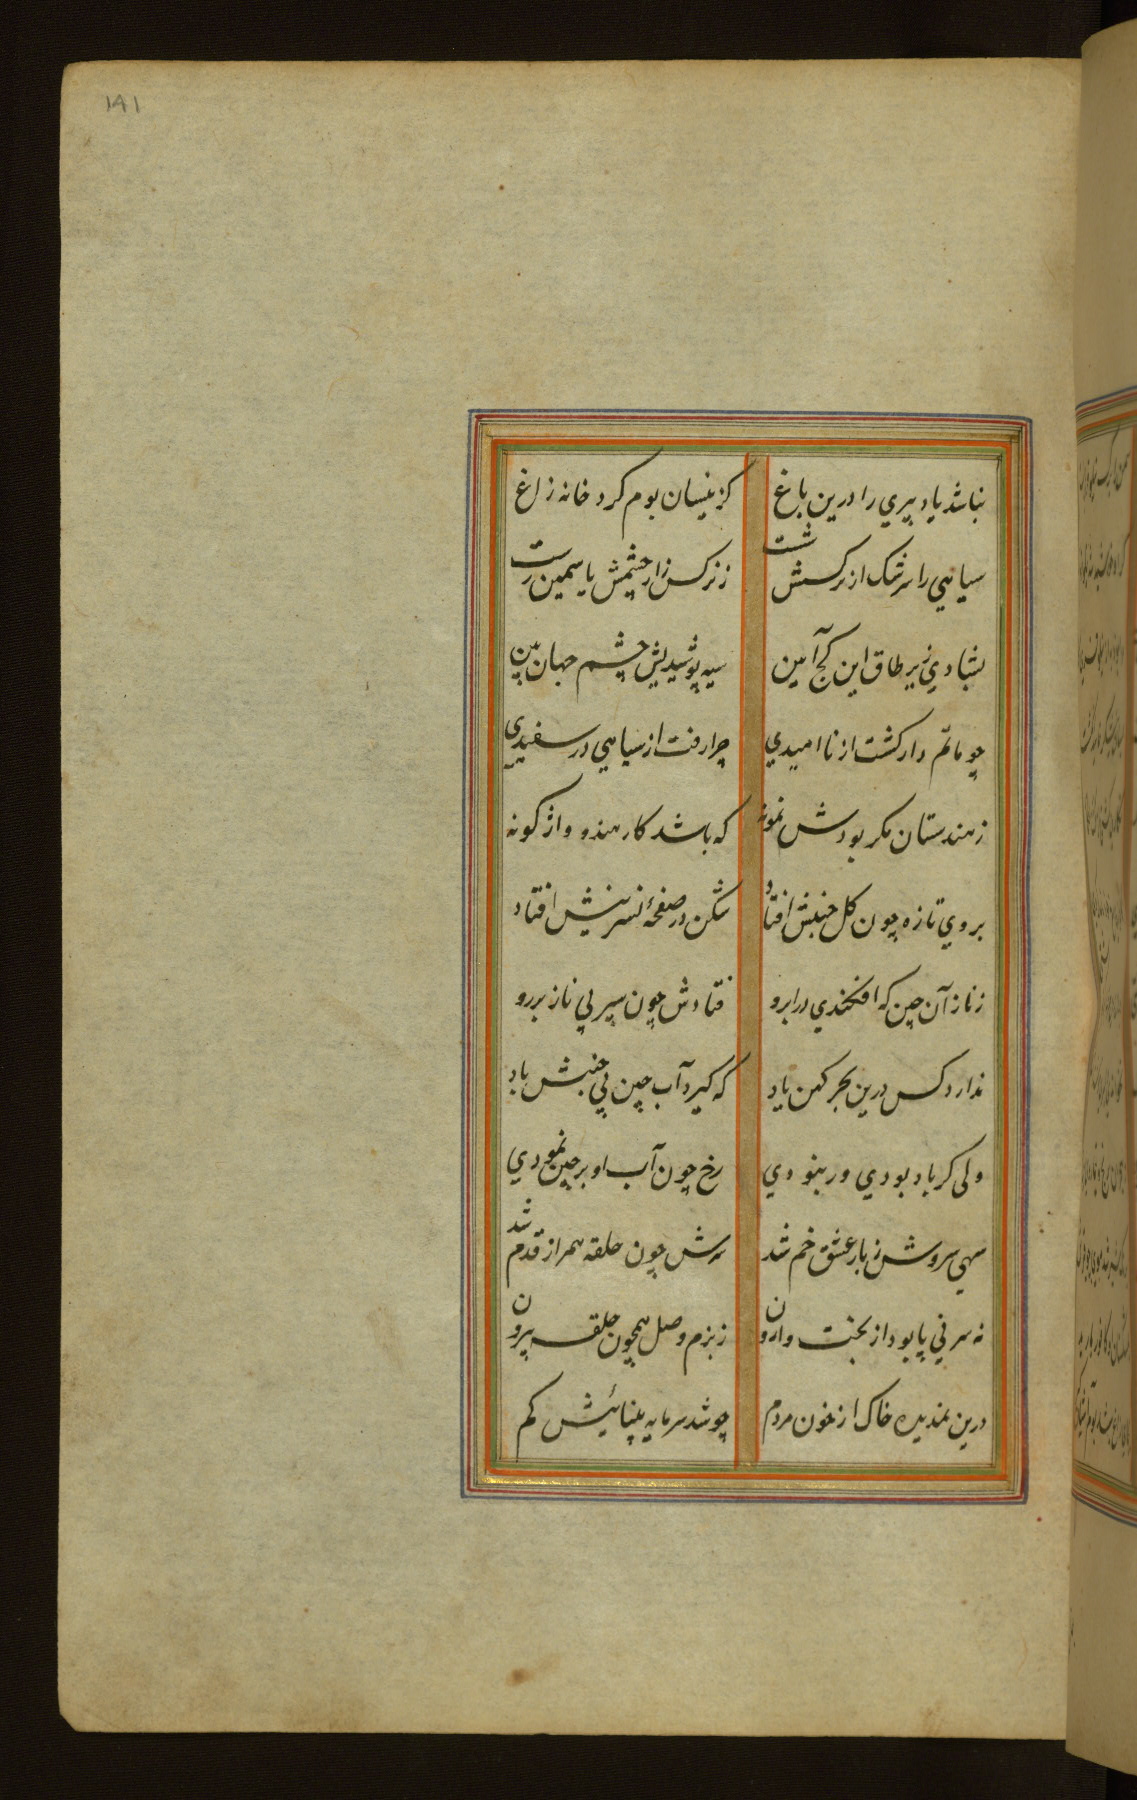 ۱۸۱
نباشد یاد پیری را درین باغ کزینسان بوم کرد خانه زاغ
سیاهی را سرشک از نرکسش شست ز نرکس زار چشمش یاسمین رست
بشادی زیر طاق این کج آیین سیه پوشیدیش چشم جهان بین
چو ماتم دار کشت از ناامیدی چرا رفت از سیاهی در سفیدی
ز هندستان مکر بودش نمونه که باشد کار هندو واژکونه
بروی تازه چون کل جنبش افتاد شکن در صفحهٔ نسرینش افتاد
ز ناز آن چین که افکندی در ابرو فتادش چون سپر بی ناز بر رو
ندارد کس درین بحر کهن یاد که کیرد آب چین بی جنبش باد
ولی کر باد بودی ور نبودی رخ چون آب او بر چین نمودی
سهی سروش ز بار عشق خم شد سرش چون حلقه همراز قدم شد
نه سر نی پا بود از بخت وارون ز بزم وصل همچون حلقه بیرون
درین نمدیده خاک از خون مردم چو شد سرمایه بینائیش کم